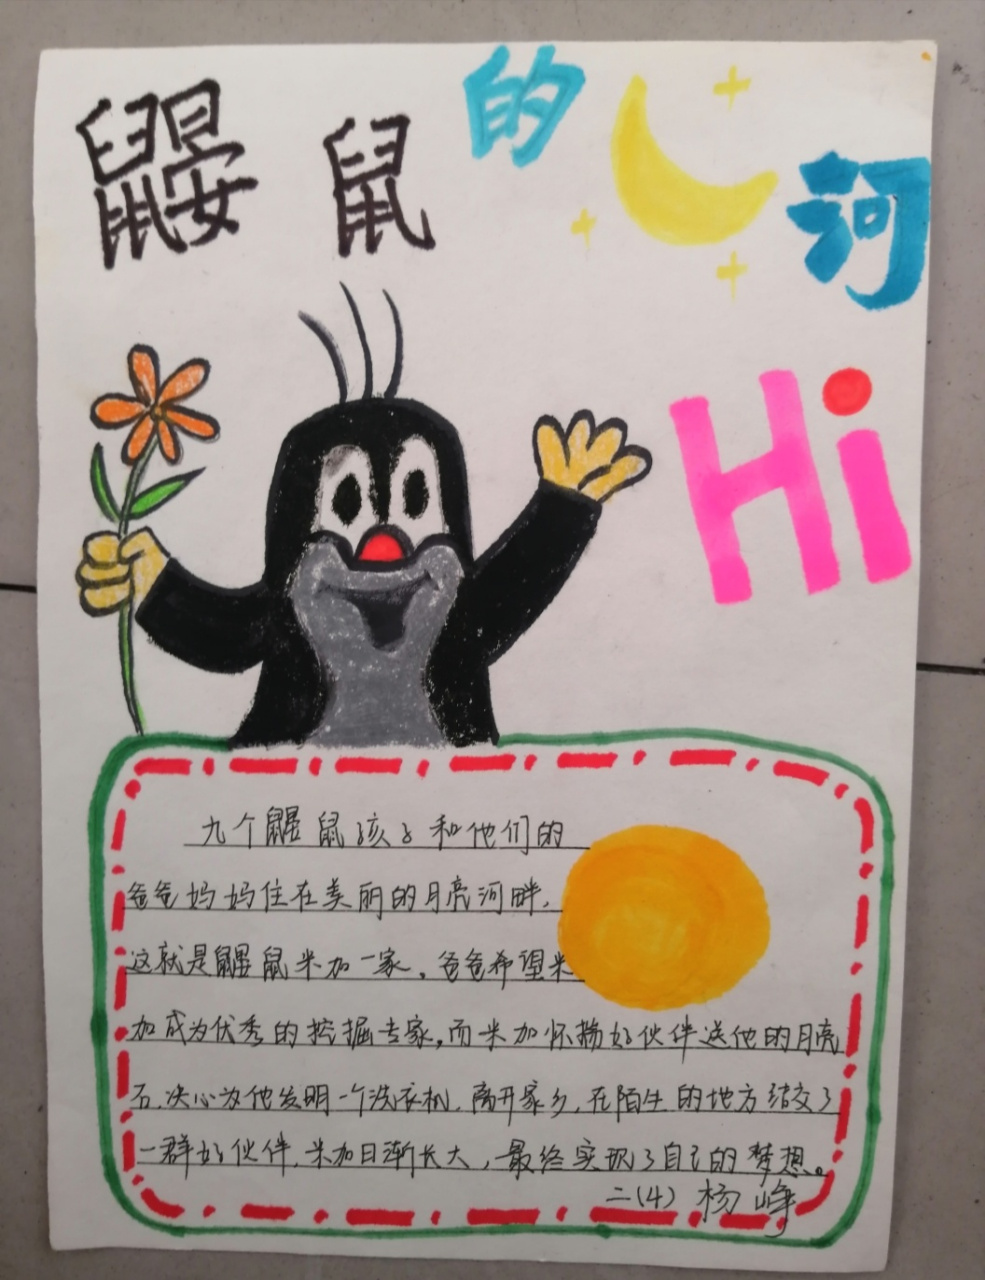 鼹鼠的
河
Hi
九个鼹鼠孩子和他们的
爸爸妈妈住在美丽的月亮河畔,
这就是鼹鼠米加一家。爸爸希望米
加成为优秀的挖掘专家,而米加怀揣好伙伴送他的月亮
石,决心为他发明一个洗衣机,离开家乡,在陌生的地方结交了
一群好伙伴,米加日渐长大,最终实现了自己的梦想。
二(4) 杨峥